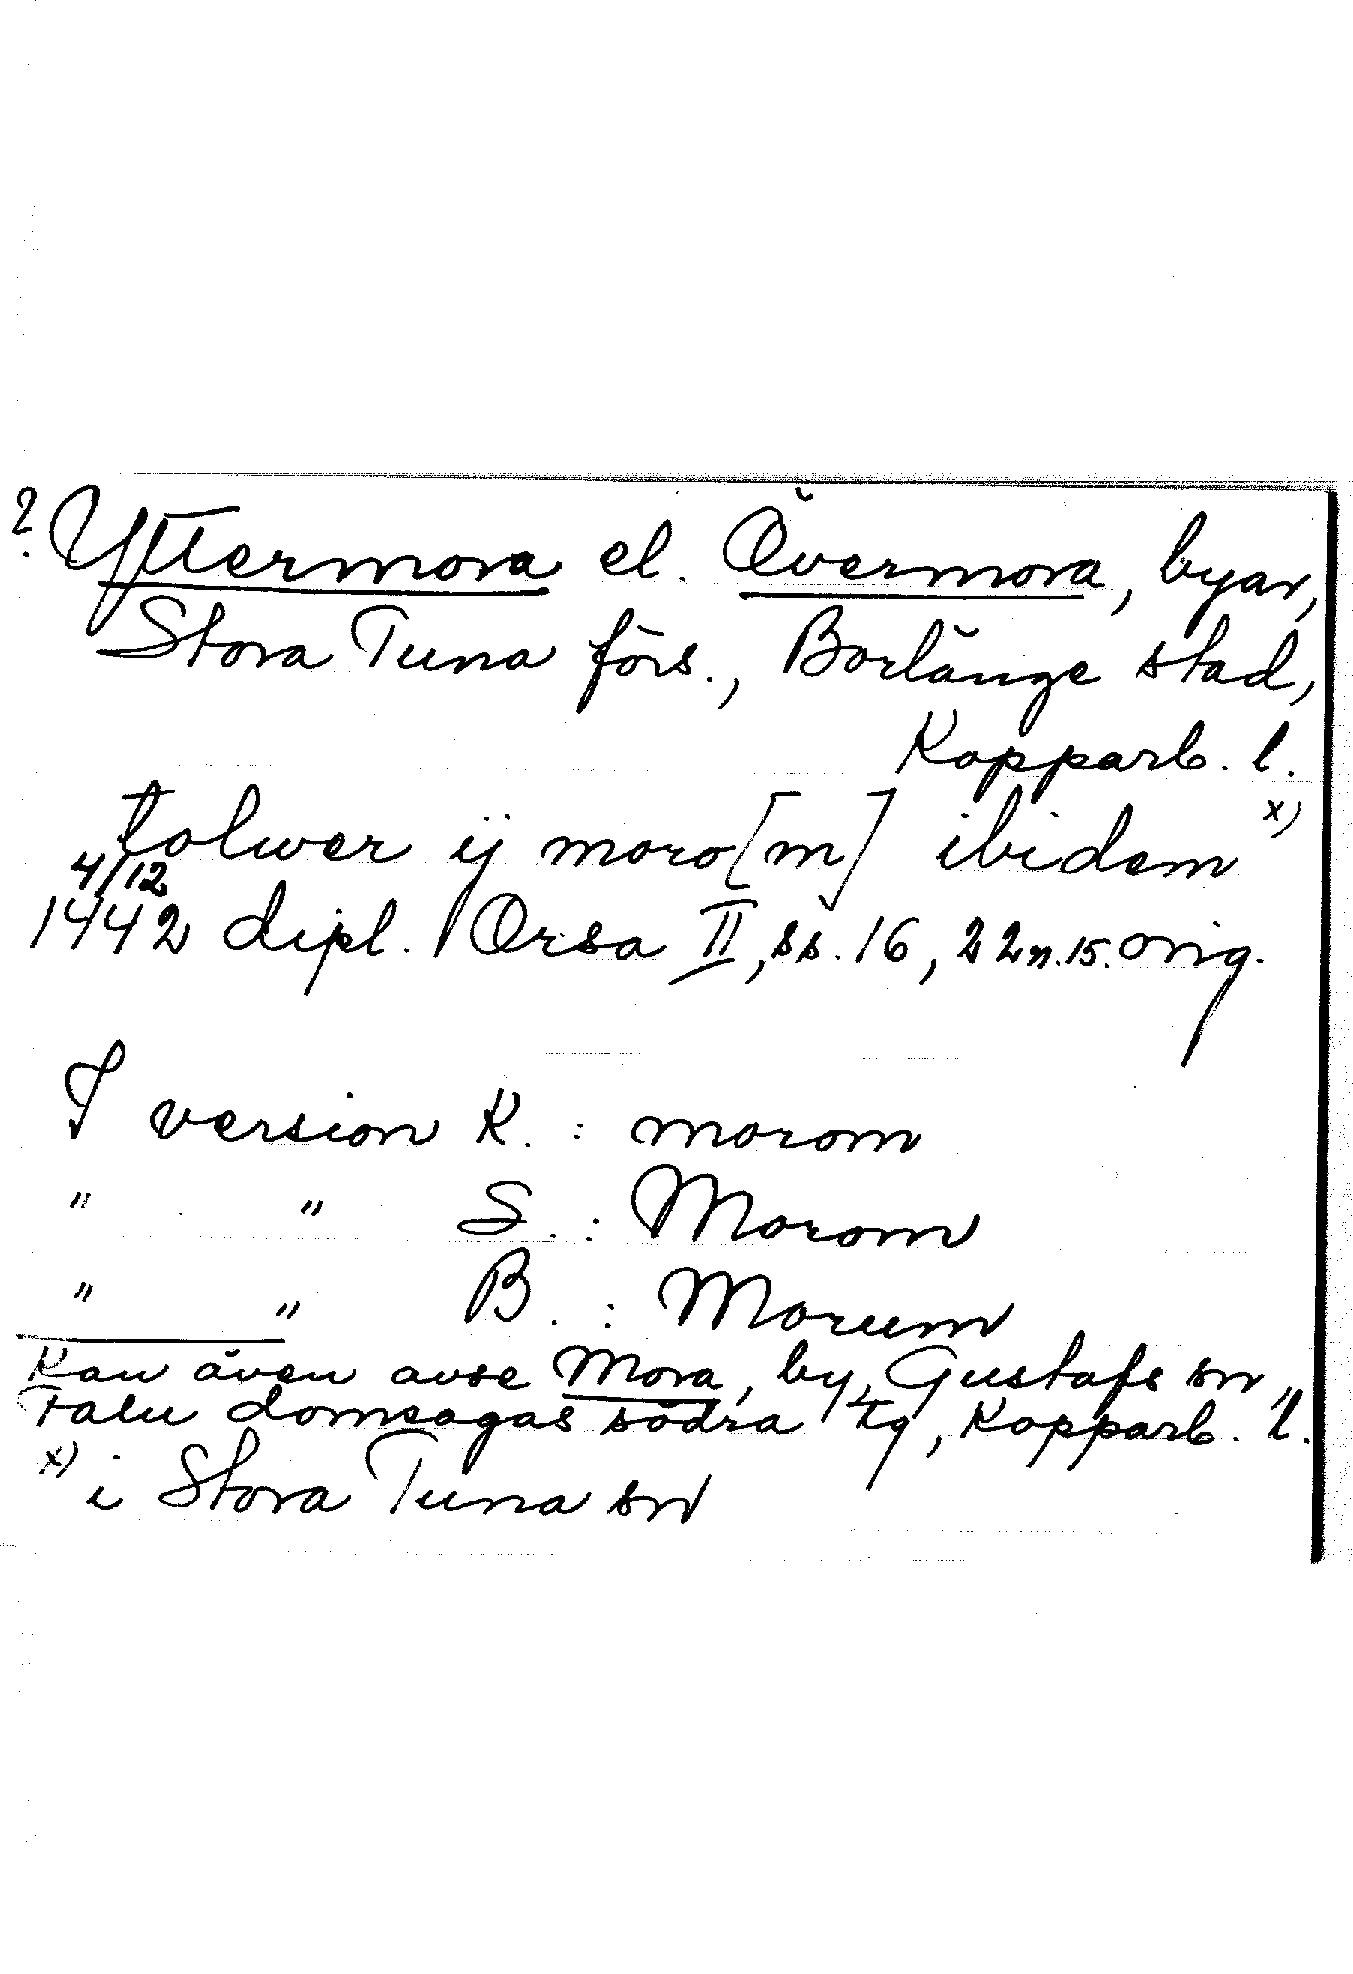 ? Yttermora el. Övermora, byar,
Stora Tuna förs., Borlänge stad,
Kopparb. l.
tolwer ij moro[m] ibidem x)
4/12
1442 dipl. Orsa II, ss. 16, 22 n. 15. orig.
I version K. : morom
" " S. : Morom
" " B. : Morum
Kan även avse Mora, by, Gustafs sn,
Falu domsagas södra tg, Kopparb. l.
x) i Stora Tuna sn